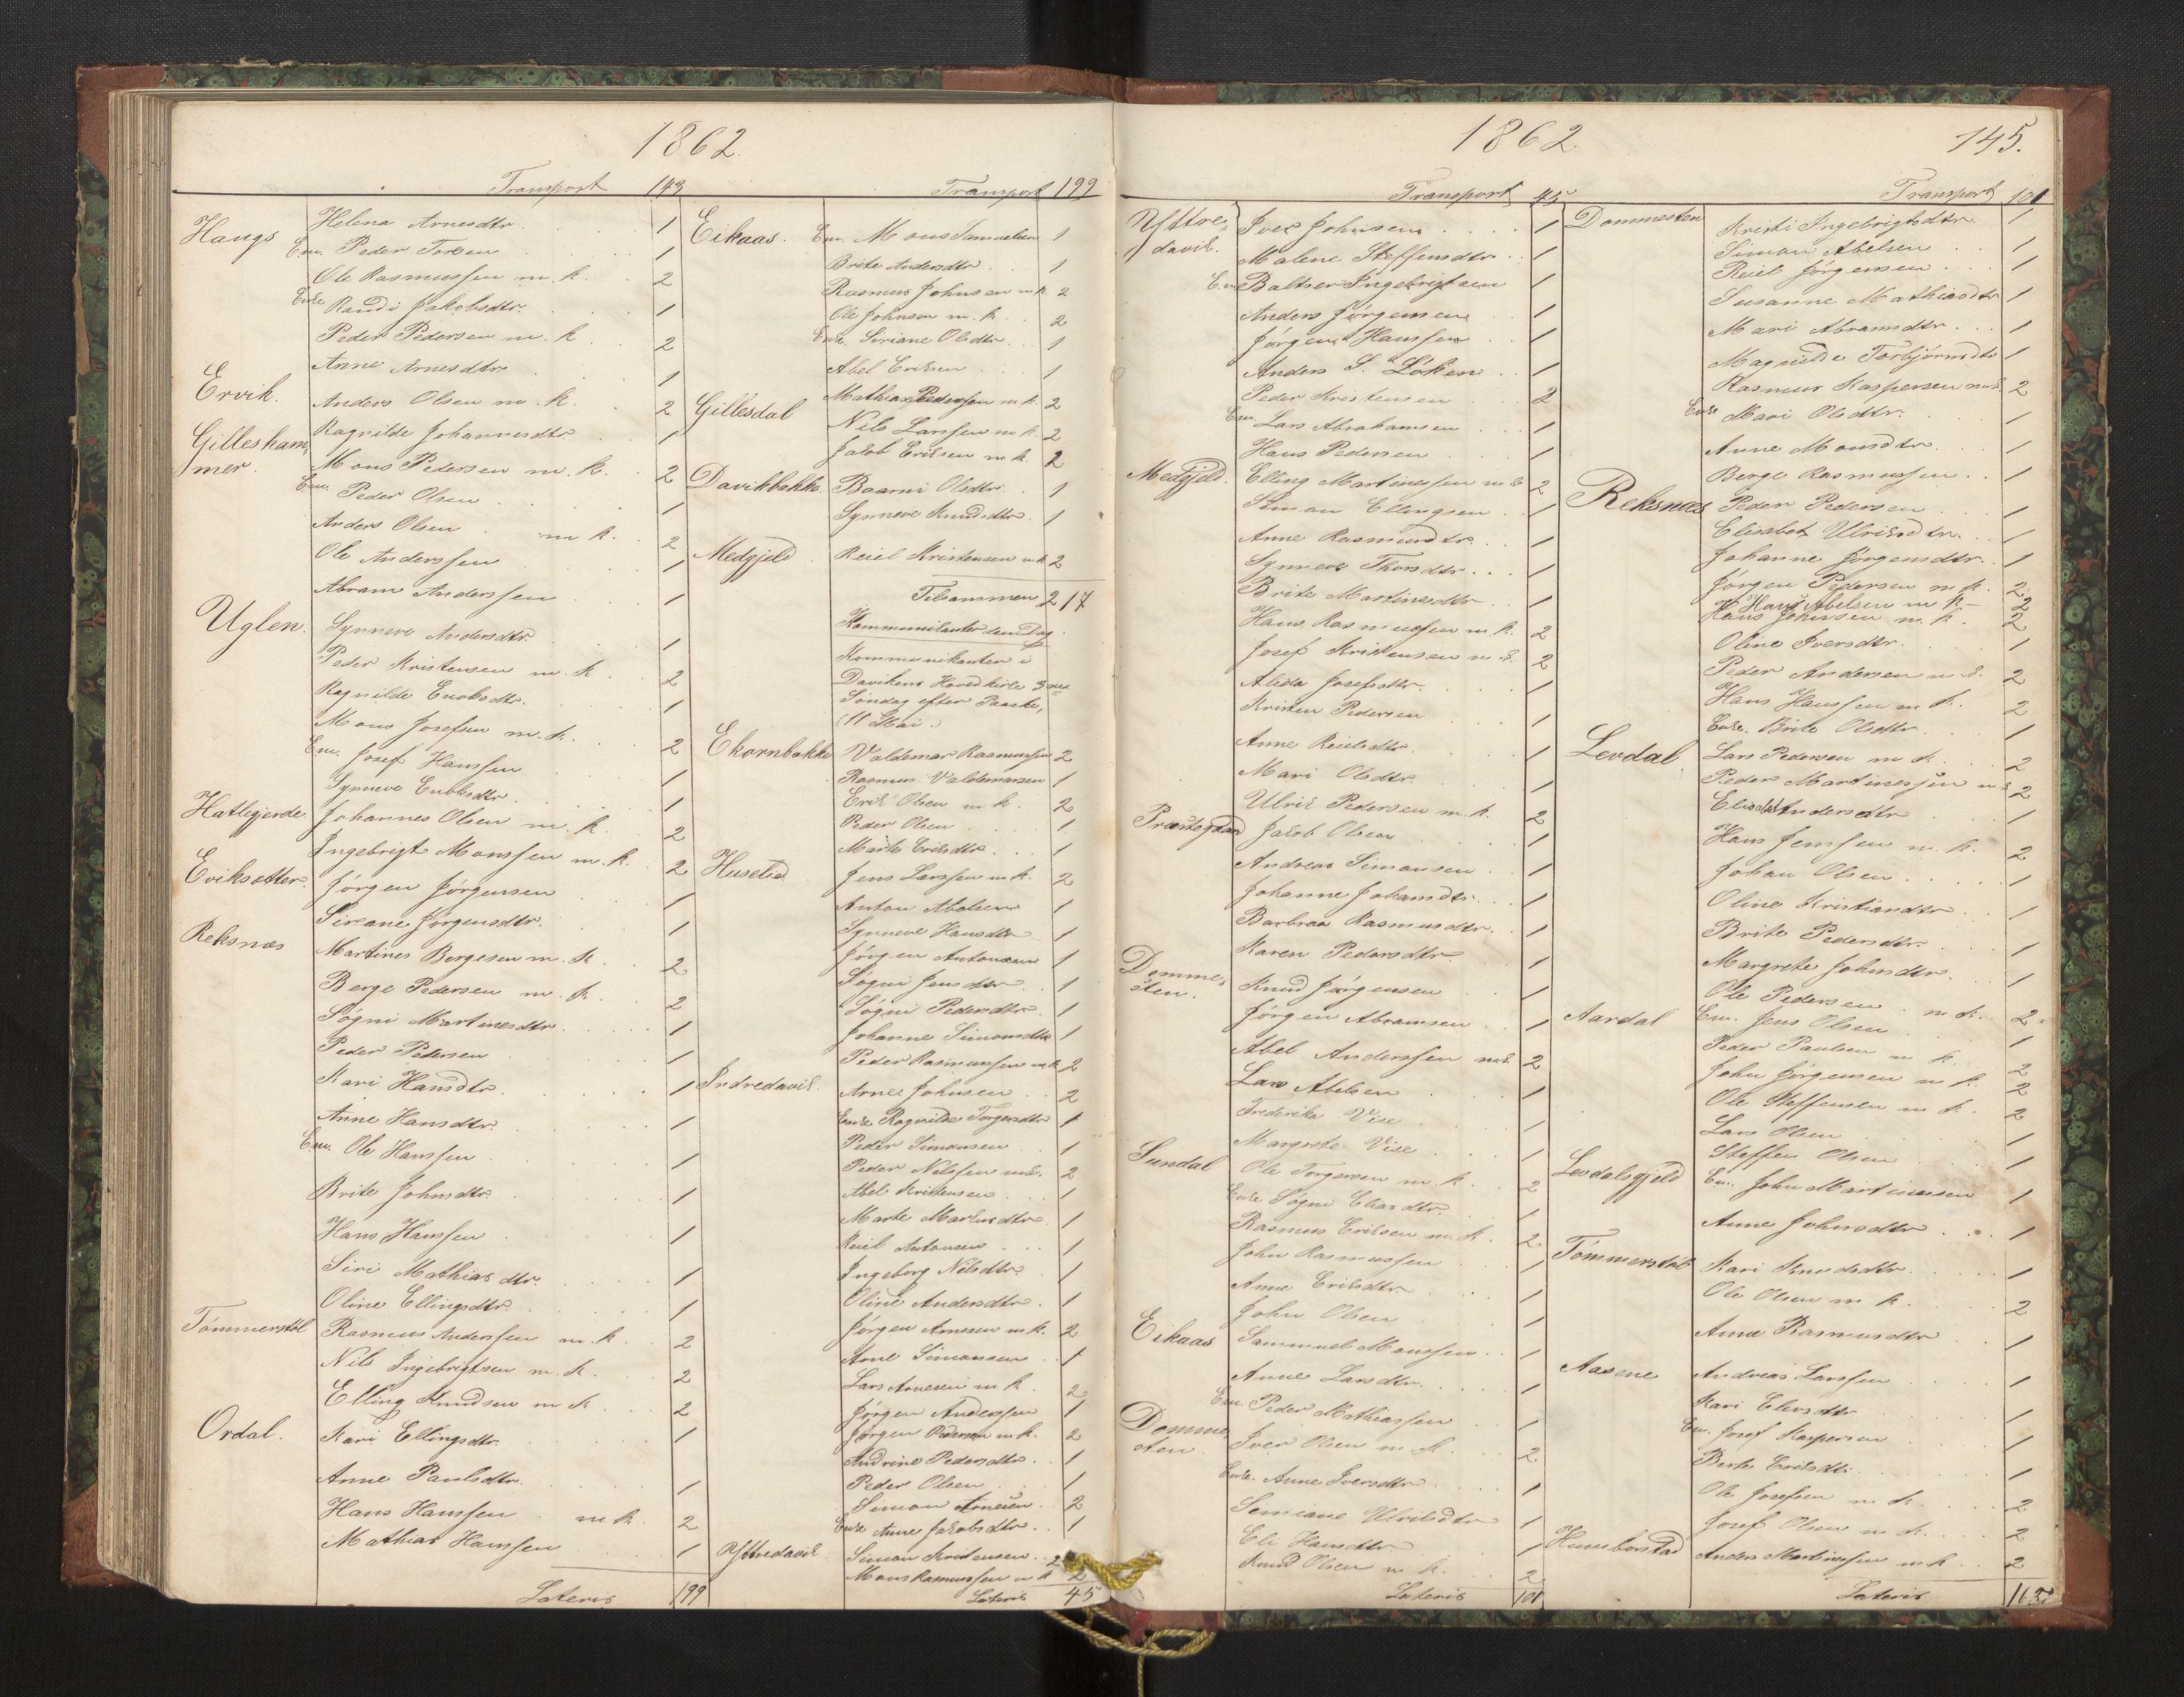 1862.
Transport 143
Haugs Helena Arnesdtr. 1
Em. Peder Torsen 1
Ole Rasmussen m. k. 2
Enke Randi Jakobsdtr. 1
Peder Pedersen m. k. 2
Anne Arnesdtr 1
Ervik. Anders Olsen m. k. 2
Gilleshammer. Ragnilde Johannesdtr. 1
Mons Pedersen m. k. 2
Em. Peder Olsen 1
Anders Olsen m k. 2
Ole Anderssen 1
Abram Anderssen 1
Uglen. Synneve Andersdtr. 1
Peder Kristensen m. k. 2
Ragnilde Enoksdtr. 1
Mons Josefsen m. k. 2
Em. Josef Hanssen 1
Synneve Enoksdtr. 1
Hatlegjerde. Johannes Olsen m. k. 2
Ingebrigt Monssen m. k. 2
Eviksætter. Jørgen Jørgensen 1
Siriane Jørgensdtr. 1
Reksnæs Martines Bergesen m. k. 2
Berge Pedersen m. k. 2
Søgni Martinesdtr. 1
Peder Pedersen 1
Kari Hansdtr. 1
Anne Hansdtr. 1
Em. Ole Hanssen 1
Brite Johnsdtr. 1
Hans Hanssen 1
Siri Mathiasdtr. 1
Oline Ellingsdtr. 1
Tømmerstøl Rasmus Anderssen m. k. 2
Nils Ingebrigtsen m. k. 2
Elling Knudsen m k. 2
Ordal. Kari Ellingsdtr. 1
Anne Paulsdtr. 1
Hans Hanssen m k. 2
Mathias Hanssen 1
Lateris 199
Transport 199
Eikaas. Em. Mons Samuelsen 1
Brite Andersdtr. 1
Rasmus Johnsen m k. 2
Ole Johnsen m. k. 2
Enke. Siriane Olsdtr. 1
Abel Eriksen 1
Gillesdal Mathias Pedersen m k. 2
Nils Larssen m k. 2
Jakob Eriksen m k. 2
Davikbakke. Baarni Olsdtr. 1
Synneve Knudsdtr. 1
Medgjeld Reiel Kristensen m k. 2
Tilsammen 217
Kommunikanter denne Dag.
Kommunikanter i
Davikens Hovedkirke 3die
Søndag efter Paaske,
(11 Mai.)
Ekornbakke Valdemar Rasmussen 2
Rasmus Valdemarsen 1
Erik Olsen m k. 2
Peder Olsen 1
Marte Eriksdtr. 1
Husetid Jens Larssen m k. 2
Anton Abelsen 1
Synneve Hansdtr 1
Jørgen Antonsen 1
Søgni Jensdtr. 1
Søgni Pedersdtr. 1
Johanne Simonsdtr 1
Peder Rasmussen m k 2
Indredavik. Arne Johnsen 2
Enke Ragnilde Torgersdtr 1
Peder Simonsen 1
Peder Nilssen m k. 2
Abel Kristensen 1
Marte Markusdtr. 1
Reiel Antonsen 1
Ingeborg Nilsdtr. 1
Oline Andersdtr. 1
Jørgen Arnesen m k. 2
Arne Simonsen 1
Lars Arnesen m k. 2
Jørgen Anderssen 1
Jørgen Pedersen m k. 2
Andrine Pedersdtr. 1
Peder Olsen 1
Simon Arnesen 2
Enke Anne Jakobsdtr. 1
Yttredavik Simon Kristensen 2
Mons Rasmussen m k 2
Lateris 45
1862 145.
Transport 45
Yttredavik. Iver Johnsen 1
Malene Steffensdtr. 1
Em. Baltser Ingebrigtsen 1
Anders Jørgensen 1
Jørgen Hanssen 1
Anders S. Løken 1
Peder Kristensen 2
Em. Lars Abrahamsen 1
Hans Pedersen 1
Medgjeld. Elling Martinessen m k 2
Simon Ellingsen 1
Anne Rasmusdtr. 1
Synneve Thorsdtr. 1
Brite Martinesdtr 1
Hans Rasmussen m. k. 2
Josef Kristensen m k. 2
Alida Josefsdtr. 1
Kristen Pedersen 1
Anne Reielsdtr. 1
Mari Olsdtr. 1
Ulrik Pedersen m. k. 2
Præstegaard Jakob Olsen 1
Andreas Simonsen 1
Johanne Johansdtr. 1
Barbraa Rasmusdtr. 1
Karen Pedersdtr. 1
Dommesten. Knud Jørgensen 1
Jørgen Abramsen 1
Abel Anderssen m k 2
Lars Abelsen 1
Frederike Vise 1
Margrete Vise 1
Sundal Ole Torgersen m. k. 2
Enke Søgni Eliasdtr. 1
Rasmus Eriksen m. k. 2
John Rasmussen 1
Anne Eriksdtr. 1
John Olsen 1
Eikaas Sammuel Monssen 1
Anne Larsdtr. 1
Em. Peder Mathiassen 1
Dommesten. Iver Olsen m k. 2
Enke. Anne Iversdtr. 1
Simiane Ulriksdtr 1
Eli Hansdtr. 1
Knud Olsen m k. 2
Lateris 101
Transport 101
Dommesten Kristi Ingebrigtsdtr. 1
Simon Abelsen 1
Reiel Jørgensen 1
Susanne Mathiasdtr 1
Mari Abramsdtr. 1
Magnilde Torbjørnsdtr 1
Rasmus Kaspersen m k. 2
Enke Mari Olsdtr. 1
Anne Monsdtr. 1
Berge Rasmussen 1
Reksnæs Peder Pedersen 1
Elisabet Ulriksdtr. 1
Johanne Jørgensdtr. 1
Jørgen Pedersen m k. 2
Hans Abelsen m k. 2
Hans Johnsen m. k. 2
Oline Iversdtr. 1
Peder Andersen m k. 2
Hans Hanssen m k. 2
Enke. Brite Olsdtr. 1
Levdal Lars Pedersen m k. 2
Peder Martinessen m k 2
Elisabet Andersdtr 1
Hans Jenssen m. k. 2
Johan Olsen 1
Oline Kristiansdtr 1
Brite Pedersdtr. 1
Margrete Johnsdtr. 1
Ole Pedersen m k. 2
Aardal Em. Jens Olsen 1
Peder Paulsen m k. 2
John Jørgensen m k. 2
Ole Steffensen m k. 2
Lars Olsen 1
Steffen Olsen 1
Levdalsgjeld Em. John Martinussen 1
Anne Johnsdtr 1
Tømmerstøl Kari Knudsdtr. 1
Ole Olsen m k. 2
Anne Rasmusdtr 1
Aasene Andreas Larssen 1
Kari Eliasdtr 1
Em. Josef Kaspersen 1
Berte Eriksdtr. 1
Ole Josefsen m k. 2
Josef Olsen m k. 2
Humborstad Anders Martinessen m k. 2
Lateris 165